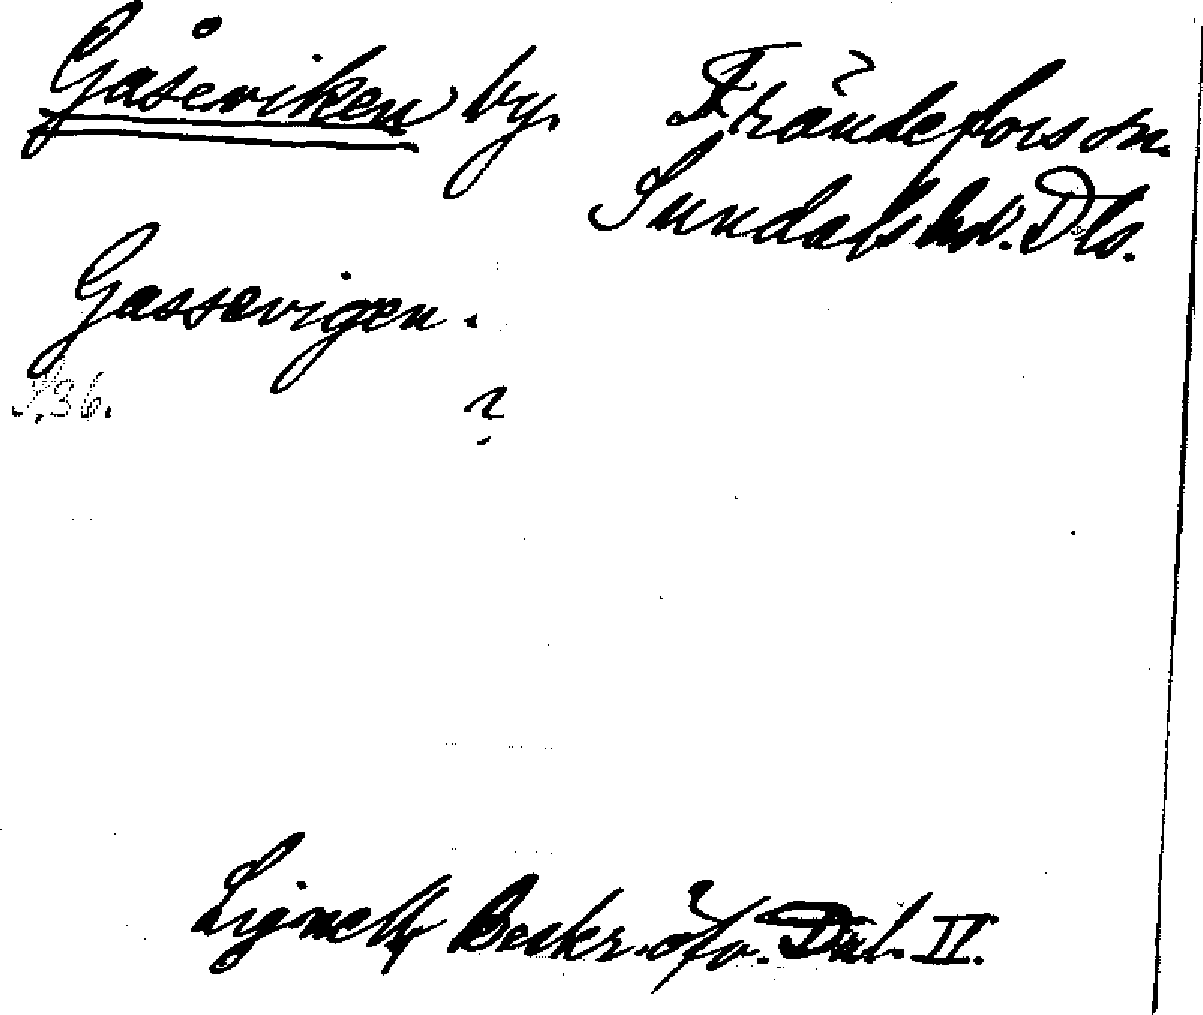 Gåseviken by. Frändefors sn.
Sundals hd. Dls.
Gassevigen.
S. 36. ?
Lignell, Beskr. öfv. Dal. II.